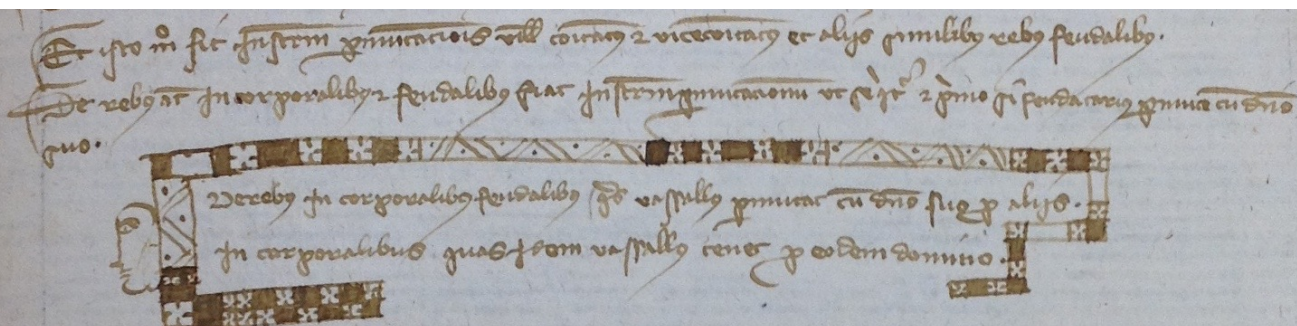 Et isto mo fit Instrm pmutaciois vill coitatus ⁊ vicecoitatus et aliis similibus rebus feudalibus.
De rebus at Incorporalibus ⁊ feudalibus fiat Instrm pmutacionu ut seqr ⁊ primo si feudatarius pmutet cu dno
suo.
De rebus In corporalibus feudalibus qs vassallus pmutat cu dno suo p aliis.
In corporalibus quas Idem vassallus tenet p eodem domino.